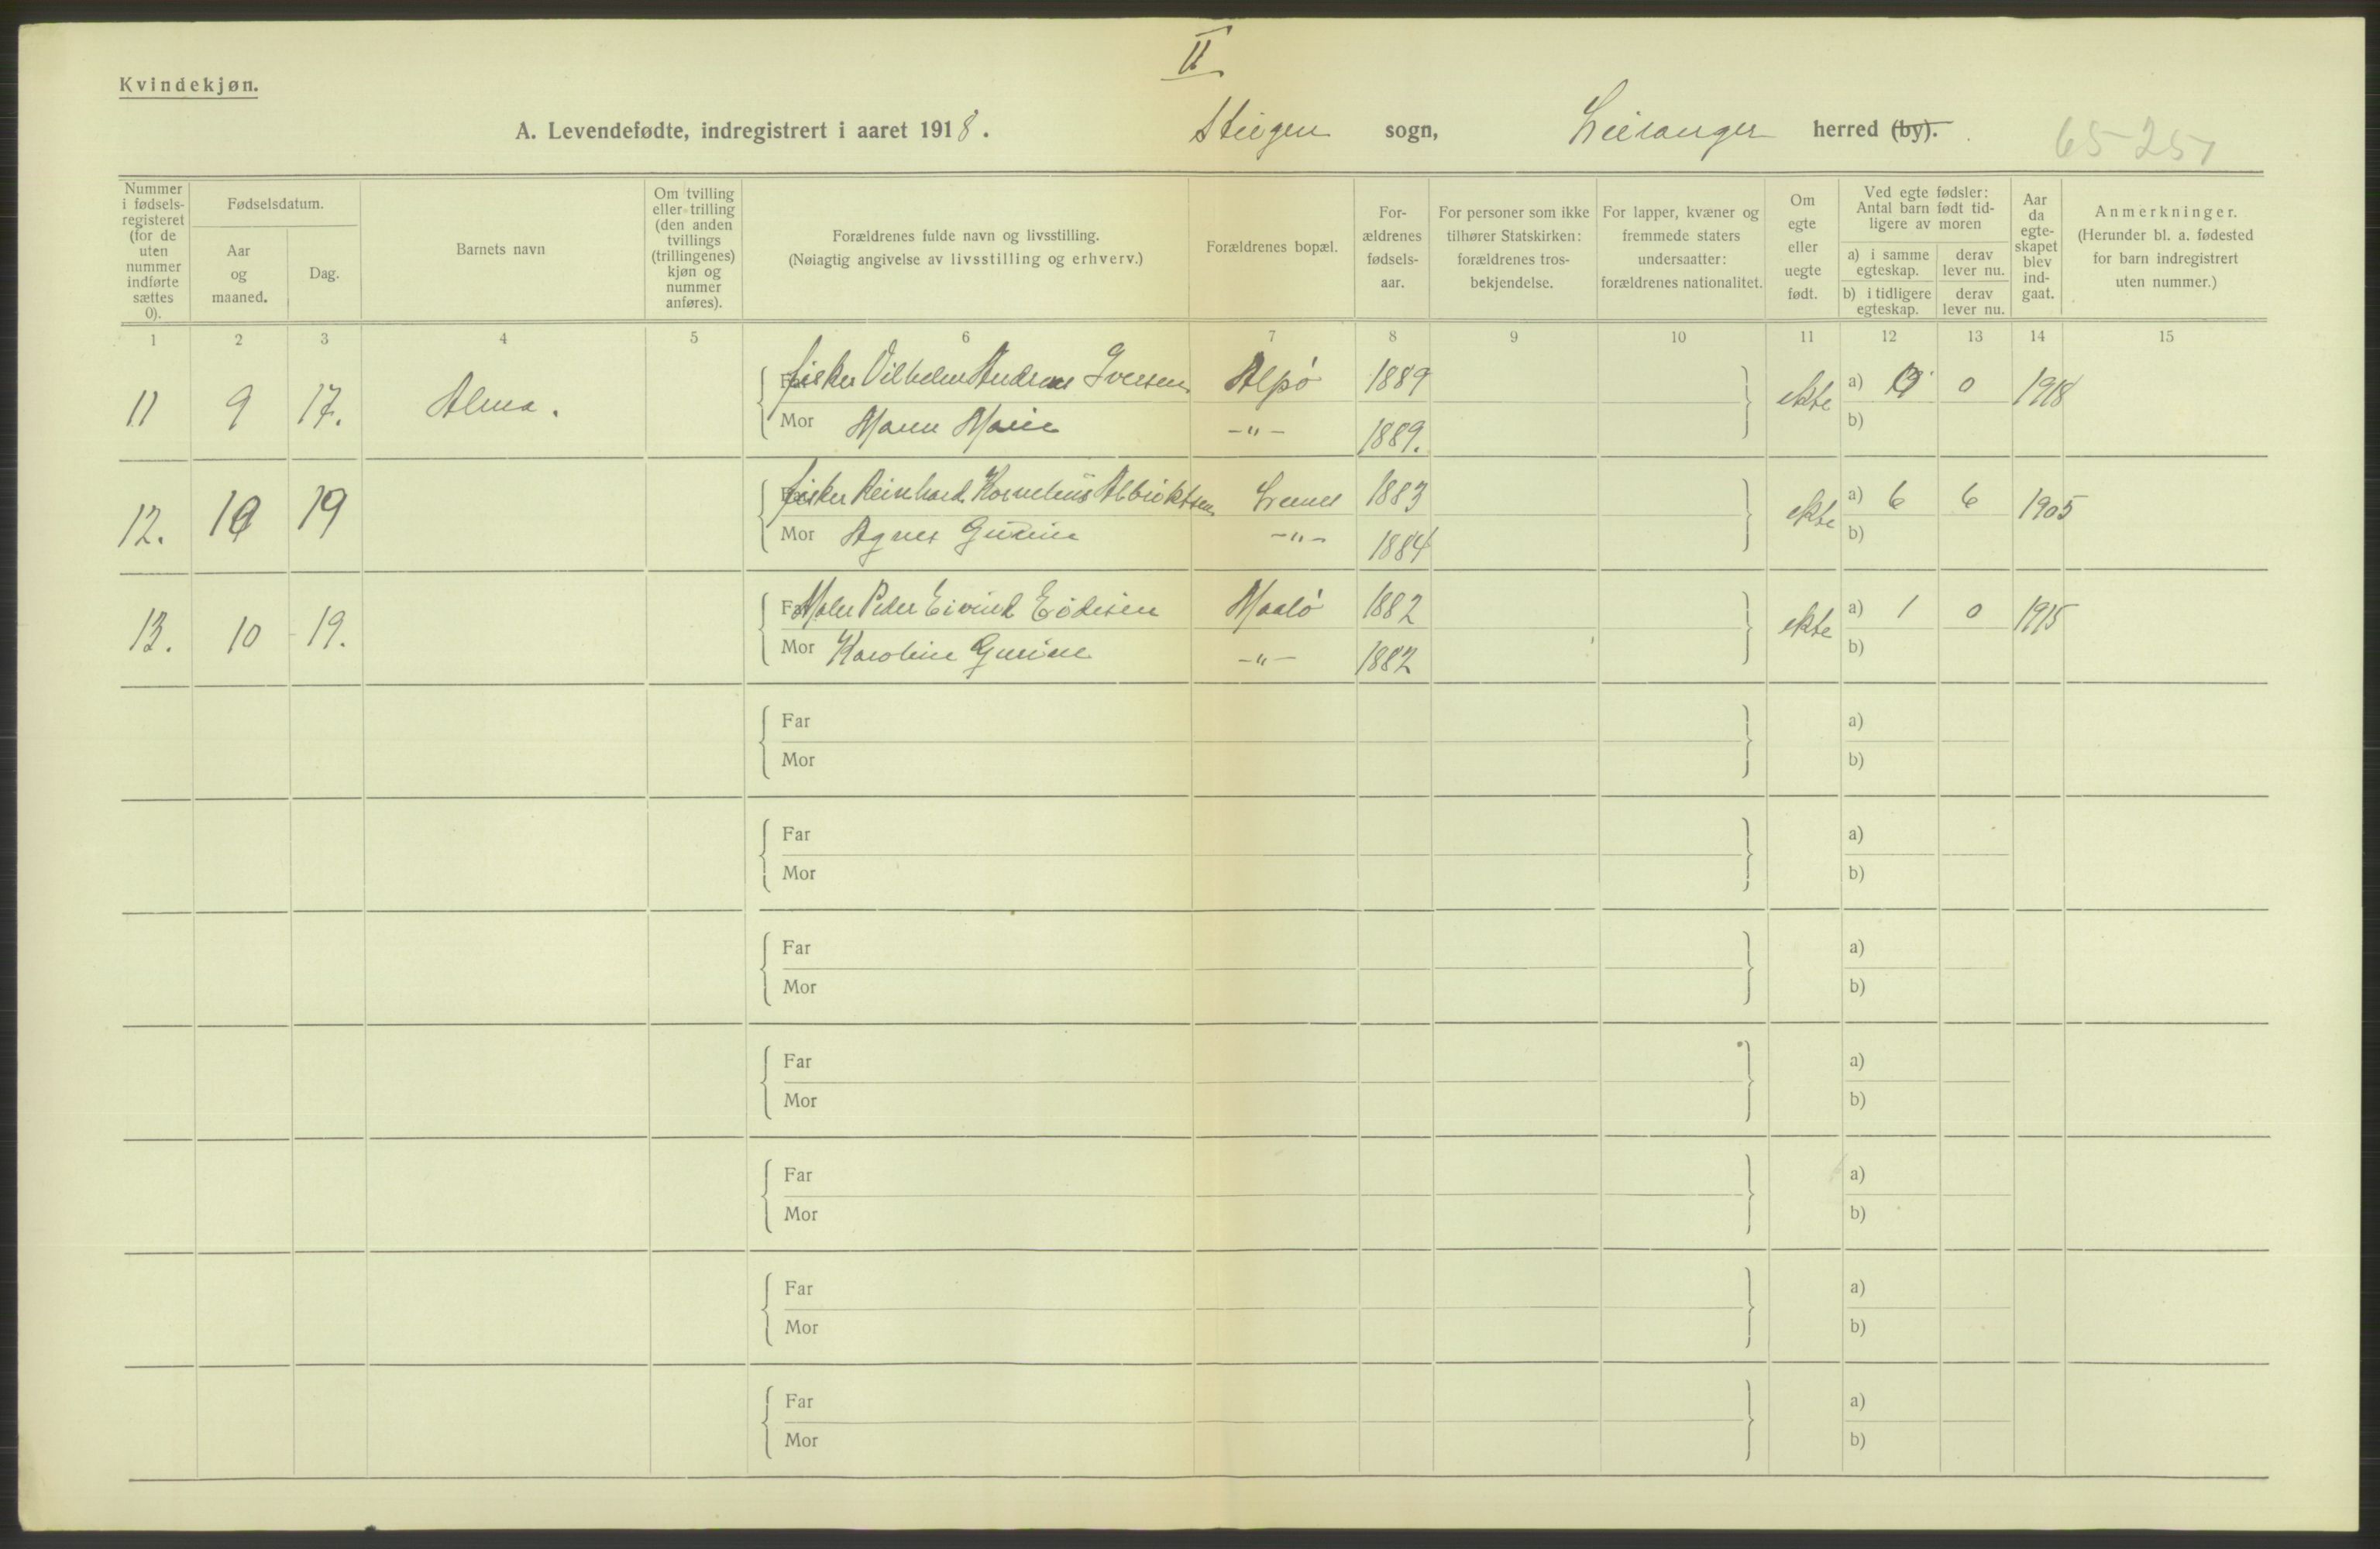 II
Kvindekjøn.
A. Levendefødte, indregistrert i aaret 1918. Steigen sogn, Leiranger herred (by).
65-251
Nummer i fødsels-registeret (for de uten nummer indførte sættes 0).
Fødselsdatum.
Aar og maaned.
Dag.
Barnets navn
Om tvilling eller trilling (den anden tvillings (trillingenes) kjøn og nummer anføres).
Forældrenes fulde navn og livsstilling.
(Nøiagtig angivelse av livsstilling og erhverv.)
Forældrenes bopæl.
For-ældrenes fødsels-aar.
For personer som ikke tilhører Statskirken: forældrenes tros-bekjendelse.
For lapper, kvæner og fremmede staters undersaatter: forældrenes nationalitet.
Om egte eller uegte født.
Ved egte fødsler: Antal barn født tid-ligere av moren
a) i samme egteskap.
derav lever nu.
b) i tidligere egteskap.
derav lever nu.
Aar da egte-skapet blev ind-gaat.
Anmerkninger.
(Herunder bl. a. fødested for barn indregistrert uten nummer.)
1 2 3 4 5 6 7 8 9 10 11 12 13 14 15
11 9 17. Alma. Far fisker Vilhelm Andreas Iversen Alpø 1889 ekte a) 0 0 1918
Mor Maren Marie -"- 1889. b)
12. 10 19 Far fisker Reinhard Kornelius Albriktsen 1883 ekte a) 6 6 1905
Mor Agnes -"- 1884 b)
13. 10 19. Far Maler Peder Eivind Maalø 1882 ekte a) 1 0 1915
Mor Karoline Gurine -"- 1882 b)
Far a)
Mor b)
Far a)
Mor b)
Far a)
Mor b)
Far a)
Mor b)
Far a)
Mor b)
Far a)
Mor b)
Far a)
Mor b)